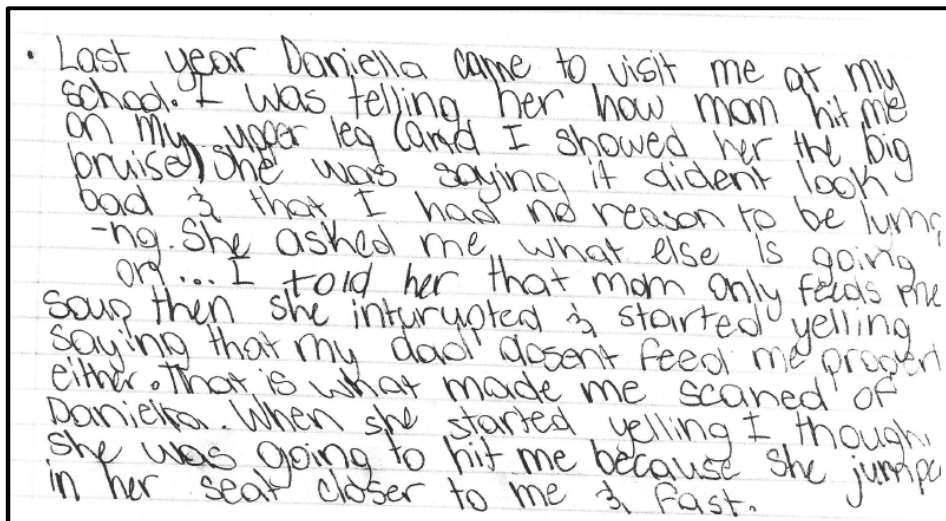 • Last year Daniella came to visit me at my
school. I was telling her how mom hit me
on my upper leg (and I showed her the big
bruise) She was saying it dident look
bad & that I had no reason to be lump
-ng. She asked me what else is going
on... I told her that mom only feeds me
soup then she inturupted & started yelling
saying that my dad dosent feed me properl
either. That is what made me scared of
Daniella. When she started yelling I though
she was going to hit me because she jumpe
in her seat closer to me & fast.